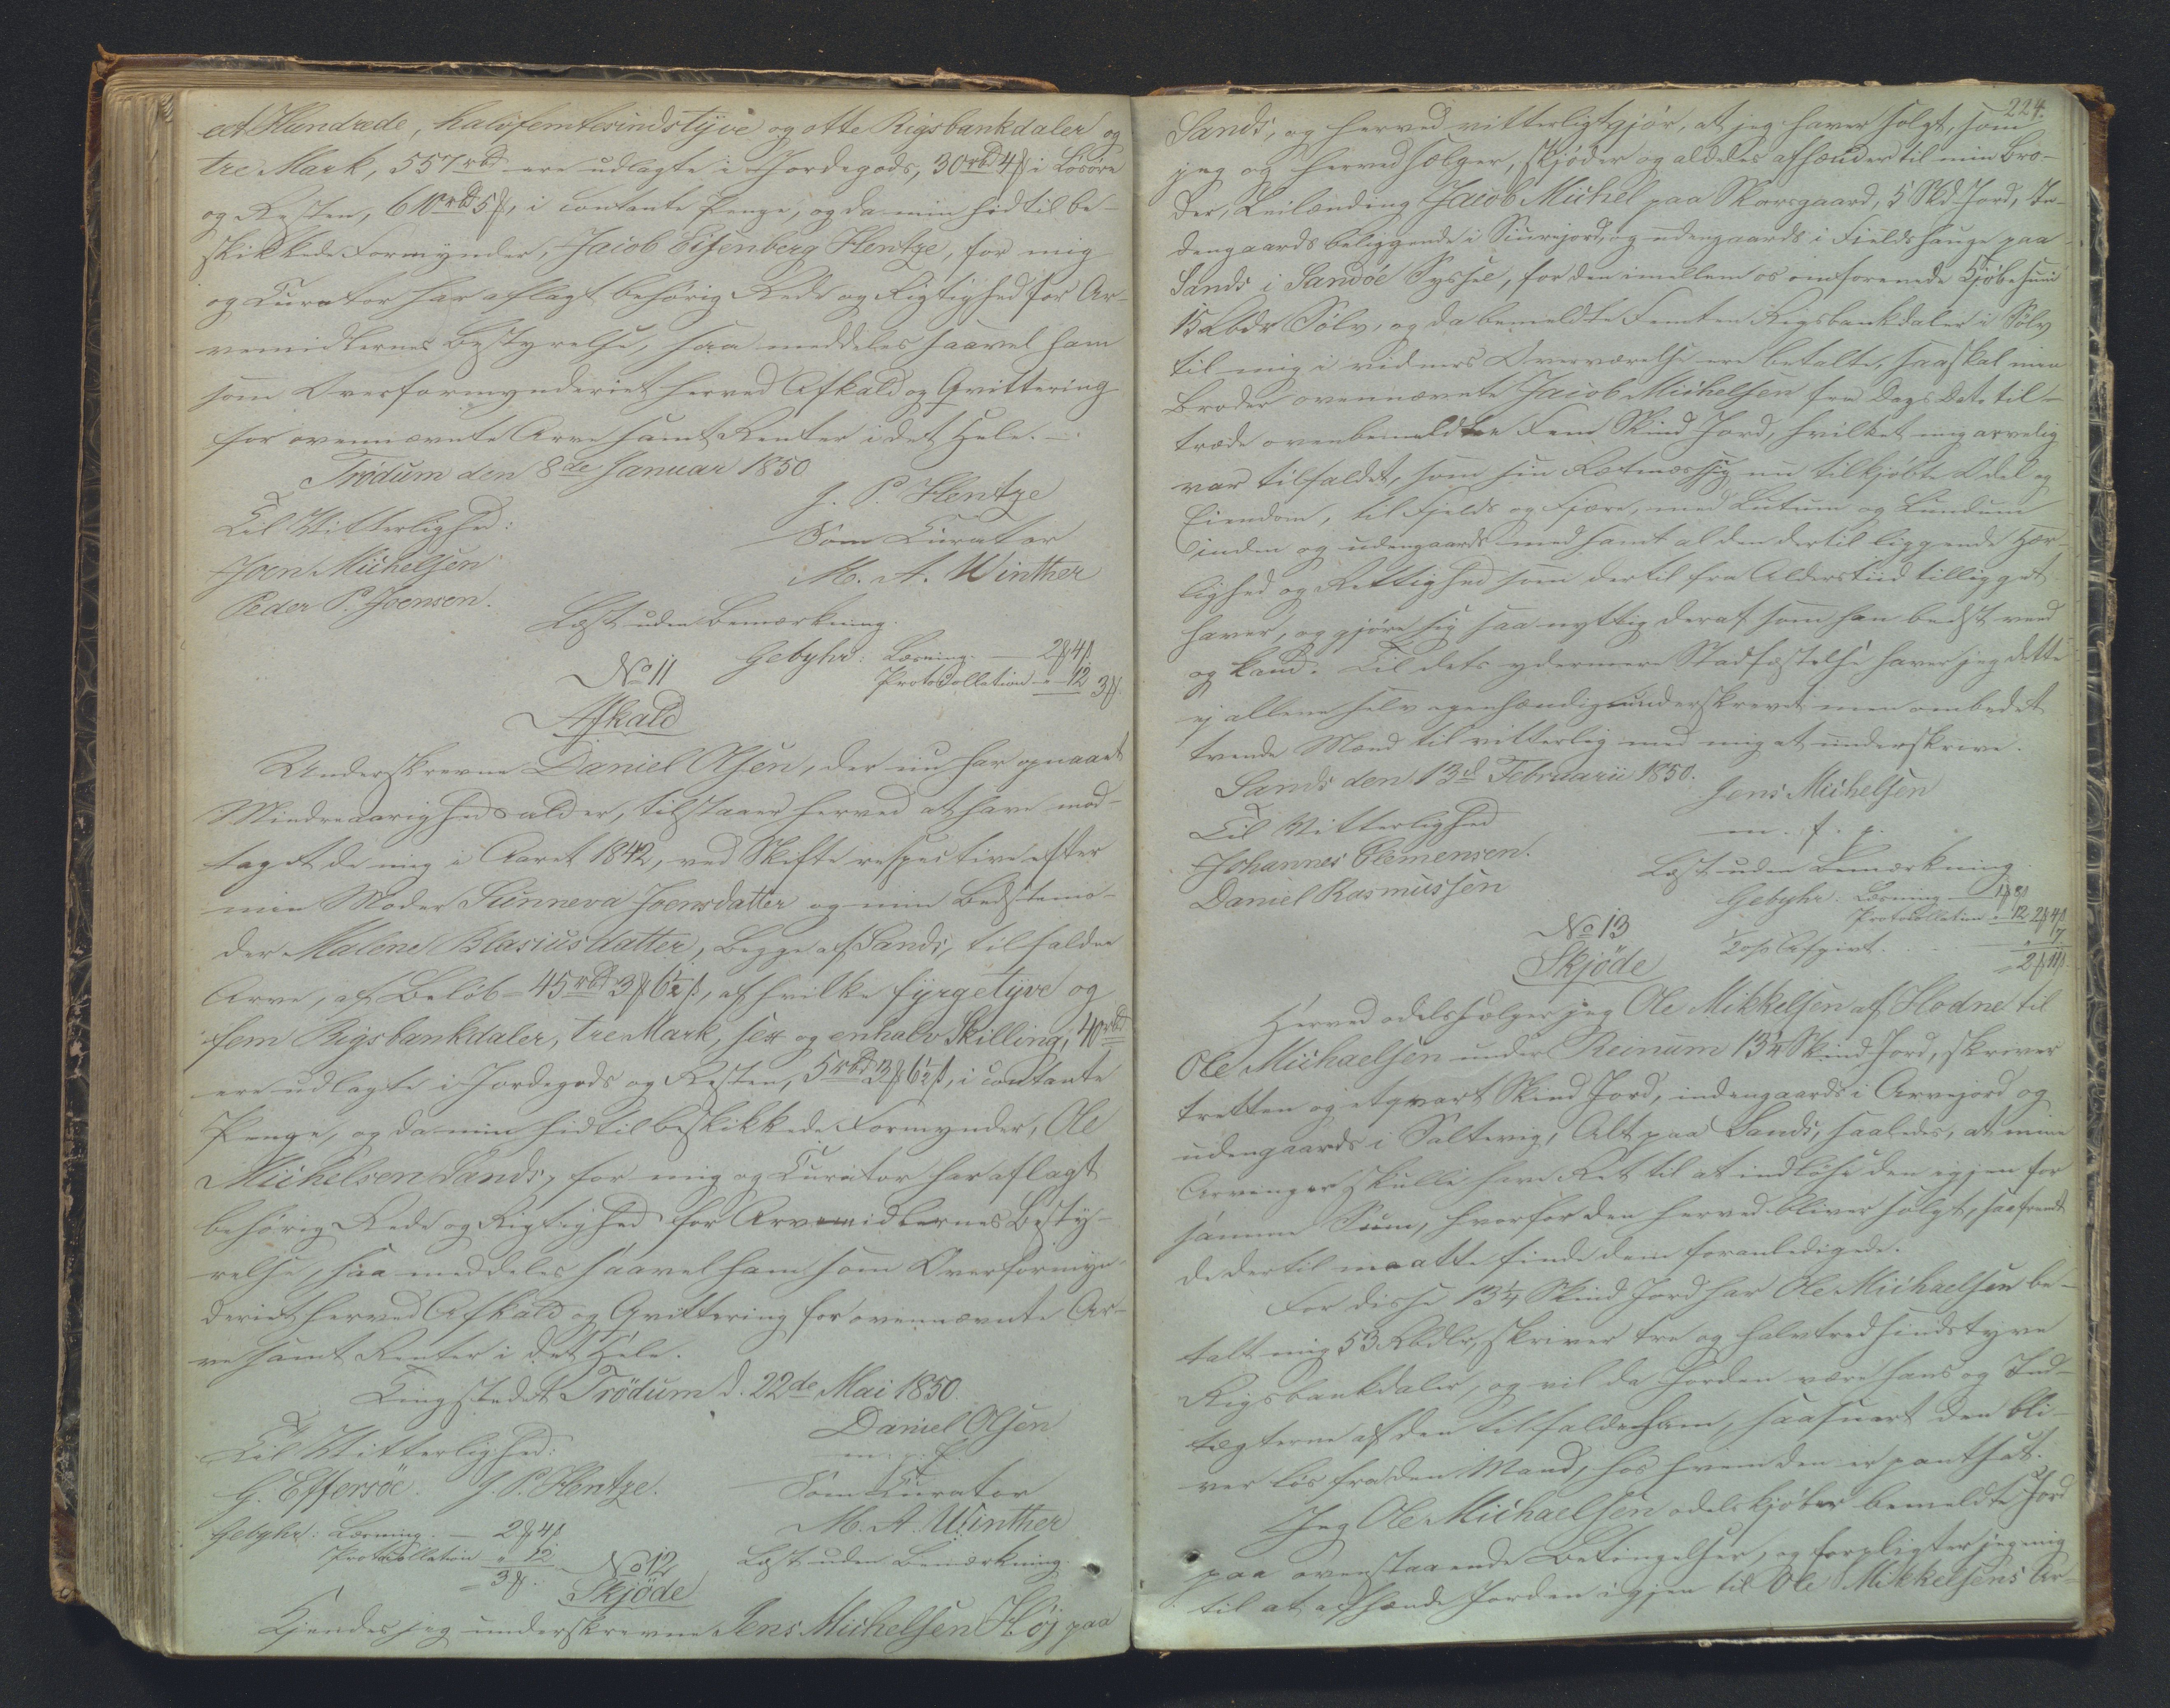 eet Hundrede, halvfemtesindstÿve og otte Rigsbankdaler og
tre Mark, 557 rbd ere udlagte i Jordegods, 30 rbd 4 ₰ i Løsøre
og Resten, 610 rbd 5 ₰, i contante Penge, og da min hidtil be-
skikkede Formynder, Jacob Eisenberg Hentze, for mig
og Curator har aflagt behørig Rede og Rigtighed for Ar-
vemidlernes Bestyrelse, saa meddeles saavel ham
som Overformynderiet herved Afkald og Qvittering
for ovennævnte Arve samt Renter i det Hele. —
Trödum den 8de Januar 1850
J. P. Hentze
Til Vitterlighed:
Som Curator
Joen Michelsen
M. A. Winther
Peder P. Joensen.
Læst uden Bemærkning.
Gebyhr: Læsning. — 2 ₰ 4 ß
No 11
Protocollation - " 12 3 ₰.
Afkald
Underskrevne Daniel Olsen, der nu har opnaaet
Mindreaarigheds alder, tilstaaer herved at have mod-
taget de mig i Aaret 1842, ved Skifte respective efter
min Moder Sunneva Joensdatter og min Bedstemo-
der Malene Blasiusdatter, begge af Sands, tilfaldne
Arve, af Beløb = 45 rbd 3 ₰ 6½ ß, af hvilke fÿrgetÿve og
fem Rigsbankdaler, tre Mark, sex og enhalv Skilling, 40 rbd
ere udlagte i Jordegods og Resten, 5 rbd 3 ₰ 6½ ß, i contante
Penge, og da min hidtil beskikkede Formynder, Ole
Michelsen Sands, for mig og Curator har aflagt
behørig Rede og Rigtighed for Arvemidlernes Besty-
relse, saa meddeles saavel ham som Overformyn-
deriet herved Afkald og Qvittering for ovennævnte Ar-
ve samt Renter i det Hele.
Tingstedet Trödum d. 22de Mai 1850.
Daniel Olsen
Til Vitterlighed:
m. p. f.
G. Effersöe. J. P. Hentze.
Som Curator
Gebyhr: Læsning. — 2 ₰ 4 ß
M. A. Winther
Protocollation " 12
No 12
Læst uden Bemærkning.
= 3 ₰.
Skjöde
Kjendes jeg underskrevne Jens Michelsen Høj paa
224.
Sands, og herved vitterligtgjør, at jeg haver solgt, som
jeg og herved sælger, skjøder og aldeles afhænder til min Bro-
der, Leilænding Jacob Michel paa Skarsgaard, 5 Skd Jord, In-
dengaards beliggende i Siurejord, og udengaards i Fieldshauge paa
Sands i Sandöe Syssel, for den imellem os omforenede Kjøbesum
15 Rbdr Sölv, og da bemeldte Femten Rigsbankdaler i Sölv
til mig i vidners Overværelse ere betalte, saa skal min
Broder ovennævnte Jacob Michelsen fra Dags Dato til-
træde ovenbemeldte Fem Skind Jord, hvilket mig arvelig
var tilfaldet, som sin Retmæssig nu tilkjøbte Odel og
Eiendom, til Fjelds og Fjære, med Lutum og Lundum
inden og udengaards med samt al den dertil liggende Her-
lighed og Rettighed som dertil fra Alderstiid tilligget
haver, og gjøre sig saa nyttig deraf som han bedst veed
og kand. Til dets ydermere Stadfæstelse haver jeg dette
ej allene selv egenhændig underskrevet men ombedet
tvende Mænd til vitterlig med mig at underskrive.
Sands den 13d Februarii 1850.
Jens Michelsen
Til Vitterlighed
m. f. p.
Johannes Clemensen.
Læst uden Bemærkning
Daniel Rasmussen
Gebyhr: Læsning — 1 ₰ 8 ß
Protocollation " 12 2 ₰ 4 ß
No 13
½ o/o Afgivt . . . " 7
Skjöde
= 2 ₰ 11 ß
Herved odelssælger jeg Ole Mikkelsen af Hodne til
Ole Michaelsen under Reinum 13¼ Skind Jord, skriver
tretten og etqvart Skind Jord, indengaards i Arvejord og
udengaards i Saltevig, Alt paa Sands, saaledes, at mine
Arvinger skulle have Ret til at indløse den igjen for
samme Sum, hvorfor den herved bliver solgt, saafremt
de dertil maatte finde dem foranledigede.
For disse 13¼ Skind Jord har Ole Michaelsen be-
talt mig 53 Rbdlr, skriver tre og halvtredsindstyve
Rigsbankdaler, og vil da Jorden være hans og Ind-
tægterne af den tilfalde ham, saasnart den bli-
ver løs fra den Mand, hos hvem den er pantsat.
Jeg Ole Michaelsen odelskjøber bemeldte Jord
paa ovenstaaende Betingelser, og forpligter jeg mig
til at afhænde Jorden igjen til Ole Mikkelsens Ar-